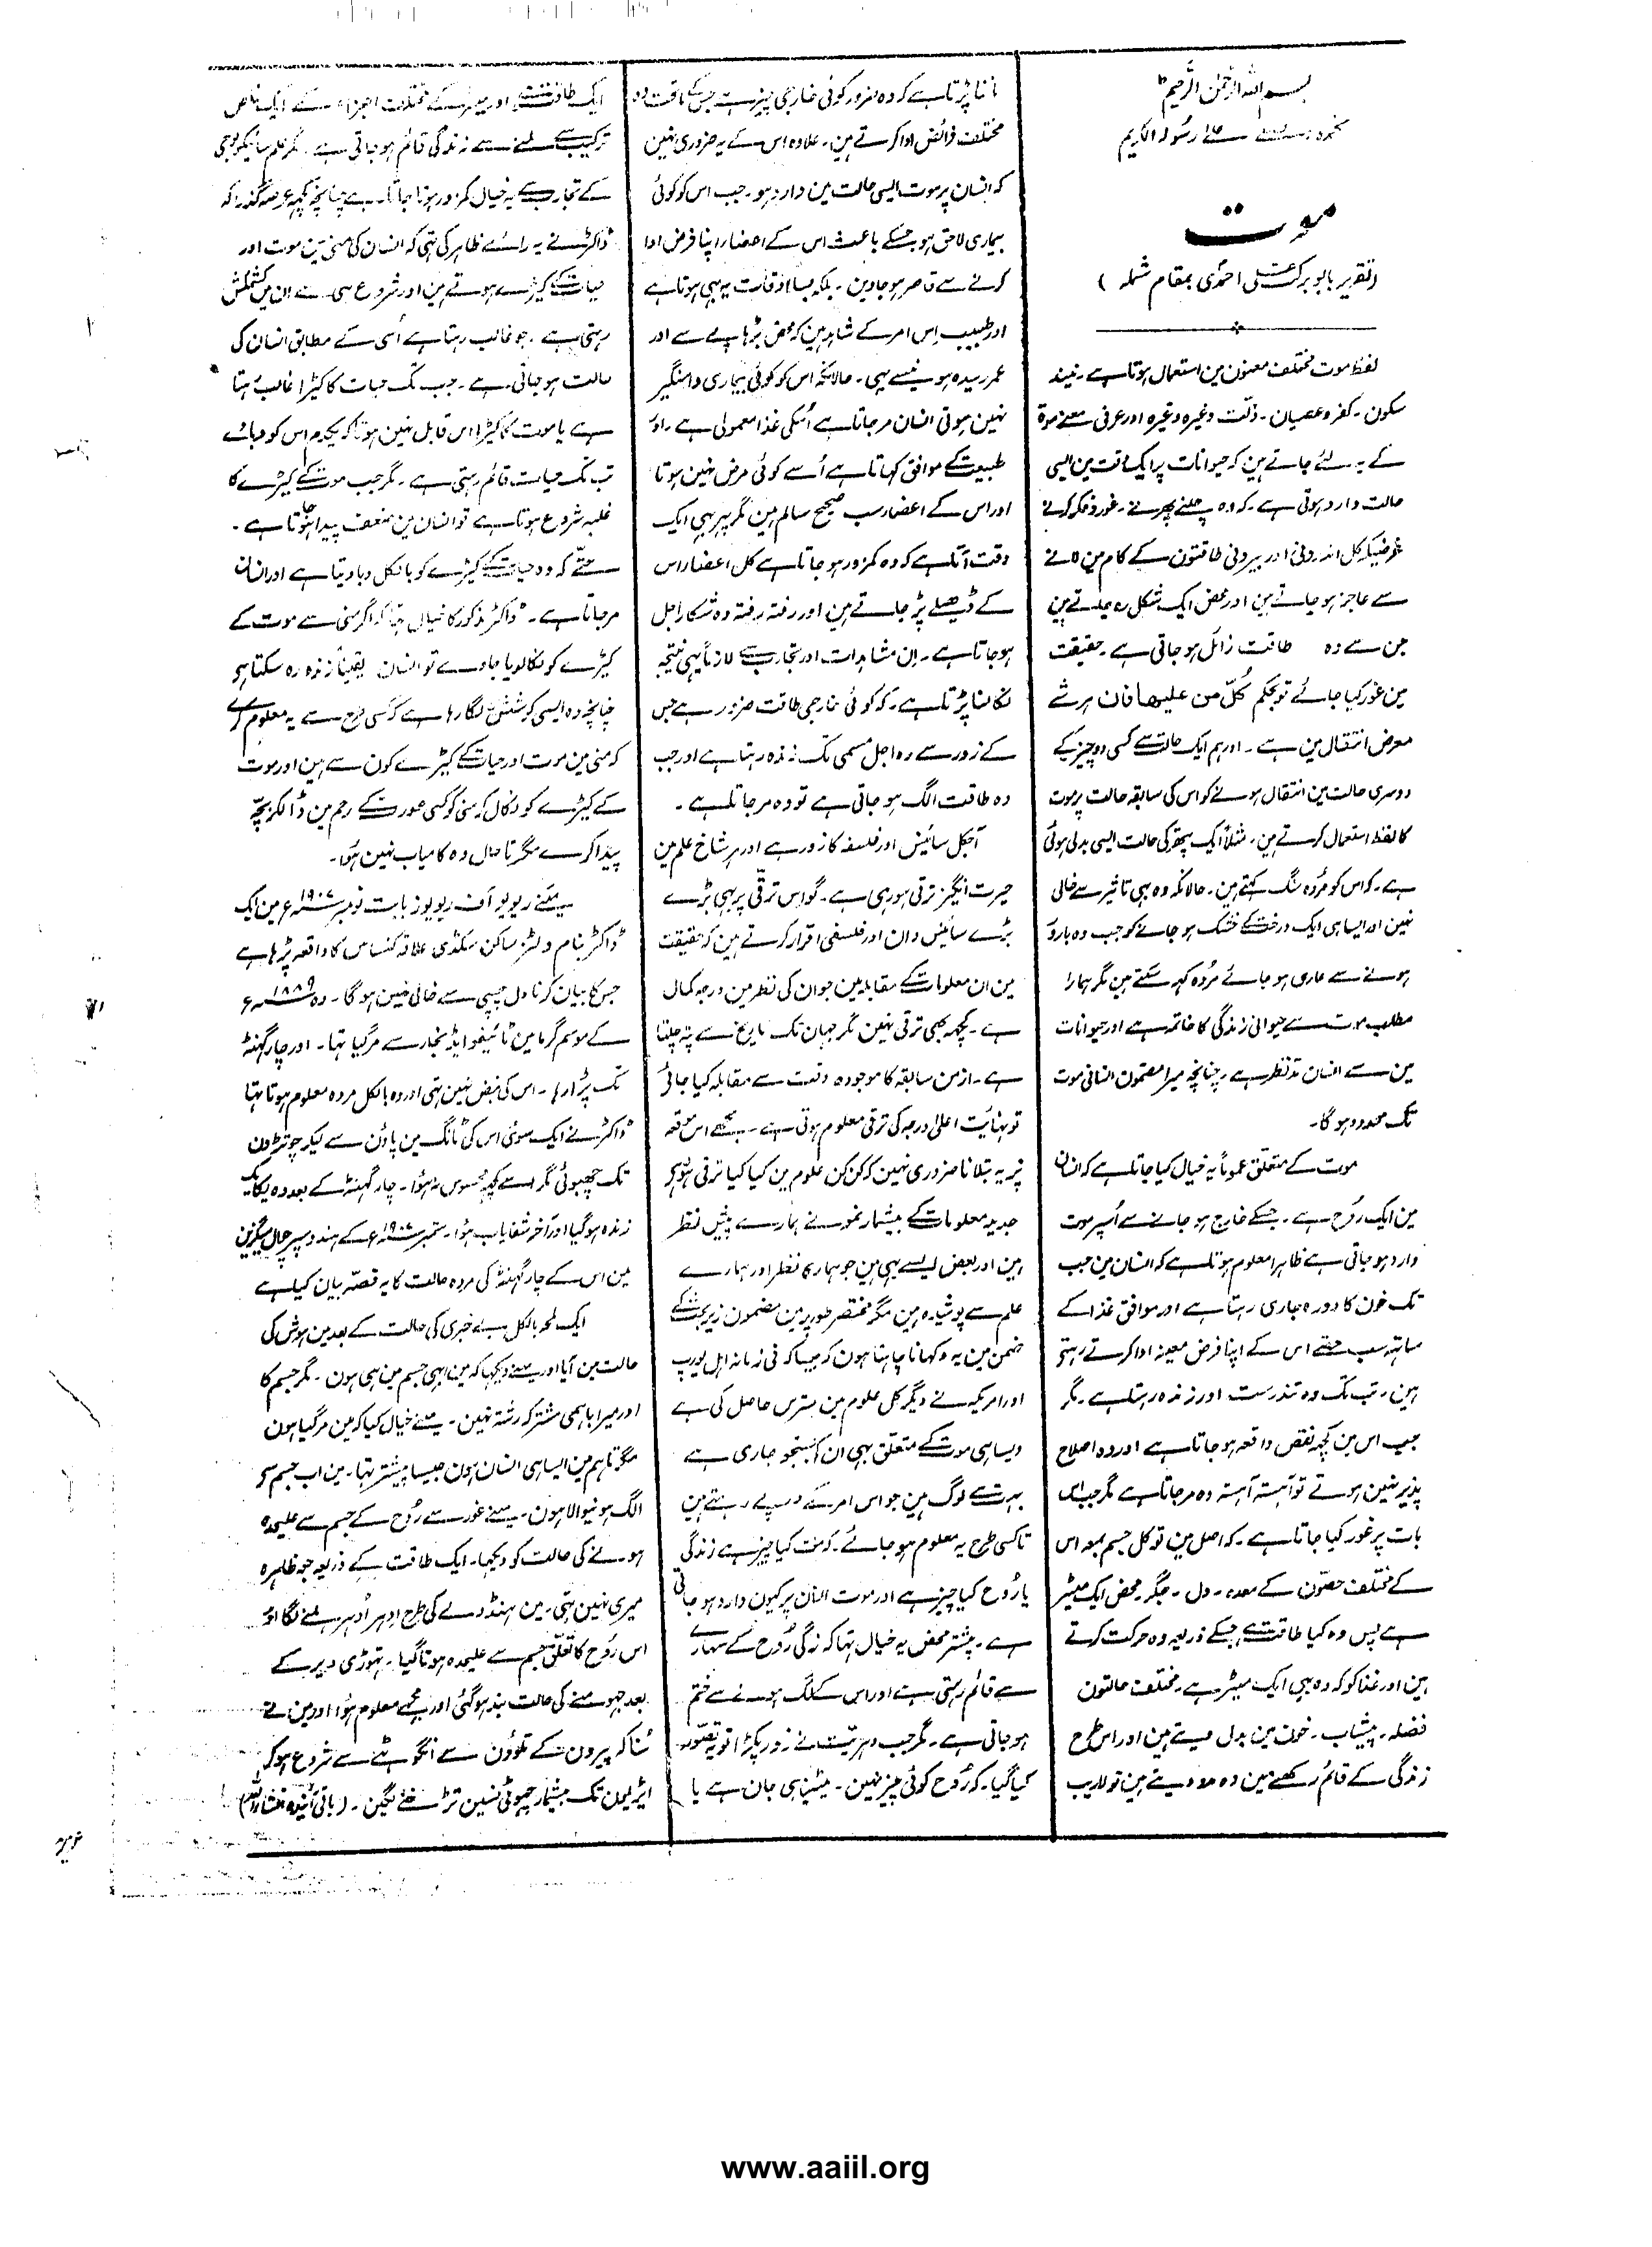 بسم اللہ الرحمٰن الرحیم
نحمدہ ونصلی علےٰ رسولہ الکریم
موت
(تقریر بابو برکت علی احمدی بمقام شملہ)
لفظ موت مختلف معنون مین استعمال ہوتا ہے۔ نیند
سکون۔ کفر و عصیان۔ ذلت وغیرہ وغیرہ اور عرفی معنے موۃ
کے یہ لئے جاتے ہین کہ حیوانات پر ایک وقت مین ایسی
حالت وارد ہوتی ہے۔ کہ وہ چلنے پھرنے۔ غور و فکر کرنے
غرضیکہ کل اندرونی اور بیرونی طاقتون کے کام مین لانے
سے عاجز ہو جاتے ہین اور محض ایک شکل رہ جاتے ہین
جن سے وہ طاقت زائل ہو جاتی ہے۔ حقیقت
مین غور کیا جائے تو بحکم کُلّ من علیھا فان ہر شے
معرض انتقال مین ہے۔ اور ہم ایک حالت سے کسی دو چیز کے
دوسری حالت مین انتقال ہونے کو اس کی سابقہ حالت پر موت
کا لفظ استعمال کرتے ہین۔ مثلاً ایک پتھر کی حالت ایسی بدلی ہوئی
ہے۔ کہ اس کو مُردہ سنگ کہتے ہین۔ حالانکہ وہ بہی تاثیر سے خالی
نہین اور ایسا ہی ایک درخت کے خشک ہو جانے کو جب وہ بارور
ہونے سے عاری ہو جائے مُردہ کہہ سکتے ہین مگر ہمارا
مطلب موت سے حیوانی زندگی کا خاتمہ ہے اور حیوانات
مین سے انسان مدنظر ہے۔ چنانچہ میرا مضمون انسانی موت
تک محدود ہوگا۔
موت کے متعلق عموماً یہ خیال کیا جاتا ہے کہ انسان
مین ایک رُوح ہے۔ جسکے خارج ہو جانے سے اُسپر موت
وارد ہو جاتی ہے ظاہرا معلوم ہوتا ہے کہ انسان مین جب
تک خون کا دورہ جاری رہتا ہے اور موافق غذا کے
ساتہہ سب حصے اس کے اپنا فرض معینہ ادا کرتے رہتی
ہین۔ تب تک وہ تندرست اور زندہ رہتا ہے۔ مگر
جب اس مین کچھ نقص واقعہ ہو جاتا ہے اور وہ اصلاح
پذیر نہین ہوتے تو آہستہ آہستہ وہ مرجاتا ہے مگر جب اس
بات پر غور کیا جاتا ہے۔ کہ اصل مین تو کل جسم بمعہ اس
کے مختلف حصّون کے معدہ۔ دل۔ جگر۔ محض ایک میٹر
ہے پس وہ کیا طاقت ہے جسکے ذریعہ وہ حرکت کرتے
ہین اور غذا کو کہ وہ بہی ایک میٹر ہے۔ مختلف حالتون
فضلہ۔ پیشاب۔ خون مین بدل دیتے ہین اور اس طرح
زندگی کے قائم رکھنے مین وہ مدد دیتے ہین تو لاریب
ماننا پڑتا ہے کہ وہ ضرور کوئی خارجی چیز ہے جس کے ماتحت وہ
مختلف فرائض ادا کرتے ہین۔ علاوہ اس کے یہ ضروری نہین
کہ انسان پر موت ایسی حالت مین وارد ہو۔ جب اس کو کوئی
بیماری لاحق ہو جسکے باعث اس کے اعضا اپنا فرض ادا
کرنے سے قاصر ہو جاوین۔ بلکہ بسا اوقات یہ بہی ہوتا ہے
اور طبیب اِس امر کے شاہد ہین کہ محض بڑہاپے سے اور
عمر رسیدہ ہونیسے بہی۔ حالانکہ اس کو کوئی بیماری دامنگیر
نہین ہوتی انسان مرجاتا ہے اُسکی غذا معمولی ہے۔ اور
طبیعت کے موافق کہاتا ہے اُسے کوئی مرض نہین ہوتا
اور اس کے اعضا سب صحیح سالم ہین مگر پہر بہی ایک
وقت آتا ہے کہ وہ کمزور ہو جاتا ہے کل اعضا اس
کے ڈھیلے پڑ جاتے ہین اور رفتہ رفتہ وہ شکار اجل
ہو جاتا ہے۔ اِن مشاہدات اور تجارب سے لازماً یہی نتیجہ
نکالنا پڑتا ہے۔ کہ کوئی خارجی طاقت ضرور ہے جس
کے زور سے وہ اجل مسمی تک زندہ رہتا ہے اور جب
وہ طاقت الگ ہو جاتی ہے تو وہ مرجاتا ہے۔
آجکل سائینس اور فلسفہ کا زور ہے اور ہر شاخ علم مین
حیرت انگیز ترقی ہو رہی ہے۔ گو اس ترقّی پر بہی بڑے
بڑے سائینس دان اور فلسفی اقرار کرتے ہین کہ حقیقت
مین ان معلومات کے مقابلہ مین جو ان کی نظر مین درجہ کمال
ہے۔ کچھ بھی ترقی نہین مگر جہان تک تاریخ سے پتہ چلتا
ہے۔ ازمن سابقہ کا موجودہ وقت سے مقابلہ کیا جائے
تو نہائیت اعلیٰ درجہ کی ترقی معلوم ہوتی ہے۔ مجھے اس موقعہ
پر یہ بتلانا ضروری نہین کہ کن کن علوم مین کیا کیا ترقی ہوئی
جدید معلومات کے بیشمار نمونے ہمارے پیش نظر
ہین اور بعض ایسے بہی ہین جو ہماری نظر اور ہمارے
علم سے پوشیدہ ہین مگر مختصر طور پر مین مضمون زیر بحث کے
ضمن مین یہ دکہانا چاہتا ہون کہ جیسا کہ فی زمانہ اہل یورپ
اور امریکہ نے دیگر کل علوم مین دسترس حاصل کی ہے
ویسا ہی موت کے متعلق بہی ان کی جستجو جاری ہے
بہت سے لوگ ہین جو اس امر کے درپے رہتے ہین
تا کسی طرح یہ معلوم ہو جائے۔ کہ موت کیا چیز ہے زندگی
یا رُوح کیا چیز ہے اور موت انسان پر کیون وارد ہو جاتی
ہے۔ پیشتر محض یہ خیال تہا کہ زندگی رُوح کے سہارے
سے قائم رہتی ہے اور اس کے الگ ہونے سے ختم
ہو جاتی ہے۔ مگر جب دہریت نے زور پکڑا تو یہ تصوّر
کیا گیا۔ کہ رُوح کوئی چیز نہین۔ میٹر ہی جان ہے یا
ایک طاقت ہے اور میٹر کے مختلف اجزاء کے ایک خاص
ترکیب سے ملنے سے زندگی قائم ہو جاتی ہے۔ مگر علم سائیکولوجی
کے تجارب سے یہ خیال کمزور ہوتا جاتا ہے چنانچہ کچھ عرصہ گذرا کہ
ڈاکٹر نے یہ رائے ظاہر کی تہی کہ انسان کی منی مین موت اور
حیات کے کیڑے ہوتے ہین اور شروع ہی سے ان مین کشمکش
رہتی ہے۔ جو غالب رہتا ہے اُسی کے مطابق انسان کی
حالت ہو جاتی ہے۔ جب تک حیات کا کیڑا غالب رہتا
ہے یا موت کا کیڑا اس قابل نہین ہوتا کہ یکدم اس کو دبائے
تب تک حیات قائم رہتی ہے۔ مگر جب موت کے کیڑے کا
غلبہ شروع ہوتا ہے تو انسان مین ضعف پیدا ہو جاتا ہے۔
حتّے کہ وہ حیات کے کیڑے کو بالکل دبا دیتا ہے اور انسان
مرجاتا ہے۔ ڈاکٹر مذکور کا خیال تہا کہ اگر منی سے موت کے
کیڑے کو نکالدیا جاوے تو انسان یقیناً زندہ رہ سکتا ہے
چنانچہ وہ ایسی کوشش لگا رہا ہے کہ کسی طرح سے یہ معلوم کرے
کہ منی مین موت اور حیات کے کیڑے کون سے ہین اور موت
کے کیڑے کو نکال کر منی کو کسی عورت کے رحم مین ڈالکر بچّہ
پیدا کرے مگر تا حال وہ کامیاب نہین ہوا۔
مینے ریویو آف ریویوز بابت نومبر ۱۹۰۷ء مین ایک
ڈاکٹر بنام ولٹز ساکن سکنڈی علاقہ کنساس کا واقعہ پڑہا ہے
جس کا بیان کرنا دلچسپی سے خالی نہین ہوگا۔ وہ ۱۸۸۹ء
کے موسم گرما مین ٹائیفو ایڈ بخار سے مر گیا تہا۔ اور چار گہنٹہ
تک پڑا رہا۔ اس کی نبض نہین تہی اور وہ بالکل مردہ معلوم ہوتا تہا
ڈاکٹر نے ایک سوئی اس کی ٹانگ مین پاؤن سے لیکر چوتڑون
تک چبہوئی مگر اسے کچھ محسوس نہ ہوُا۔ چار گہنٹہ کے بعد وہ یکایک
زندہ ہو گیا اور آخر شفایاب ہوُا۔ ستمبر ۱۹۰۷ء کے ہندو سپرچوال میگزین
مین اس کے چار گہنٹہ کی مردہ حالت کا یہ قصّہ بیان کیا ہے
ایک لمحہ بالکل بے خبری کی حالت کے بعد مین ہوش کی
حالت مین آیا اور مینے دیکہا کہ مین ابہی جسم مین ہی ہون۔ مگر جسم کا
اور میرا باہمی مشترکہ رشتہ نہین۔ مینے خیال کیا کہ مین مر گیا ہون
مگر تاہم مین ایسا ہی انسان ہون جیسا پیشتر تہا۔ مین اب جسم سے
الگ ہونیوالا ہون۔ مینے غور سے رُوح کے جسم سے علیحدہ
ہونے کی حالت کو دیکہا۔ ایک طاقت کے ذریعہ جو ظاہرہ
میری نہین تہی۔ مین ہنڈولے کی طرح اِدہر اُدہر ہلنے لگا اور
اس رُوح کا تعلّق جسم سے علیحدہ ہوتا گیا۔ تہوڑی دیر کے
بعد جہومنے کی حالت بند ہو گئی اور مجھے معلوم ہوُا اور مین نے
سُنا کہ پیرون کے تلوؤن سے انگوٹہے سے شروع ہو کر
ایڑیون تک بیشمار چہوٹی نسین تڑخنے لگین۔ (باقی آئندہ انشاء اللہ)
www.aaiil.org